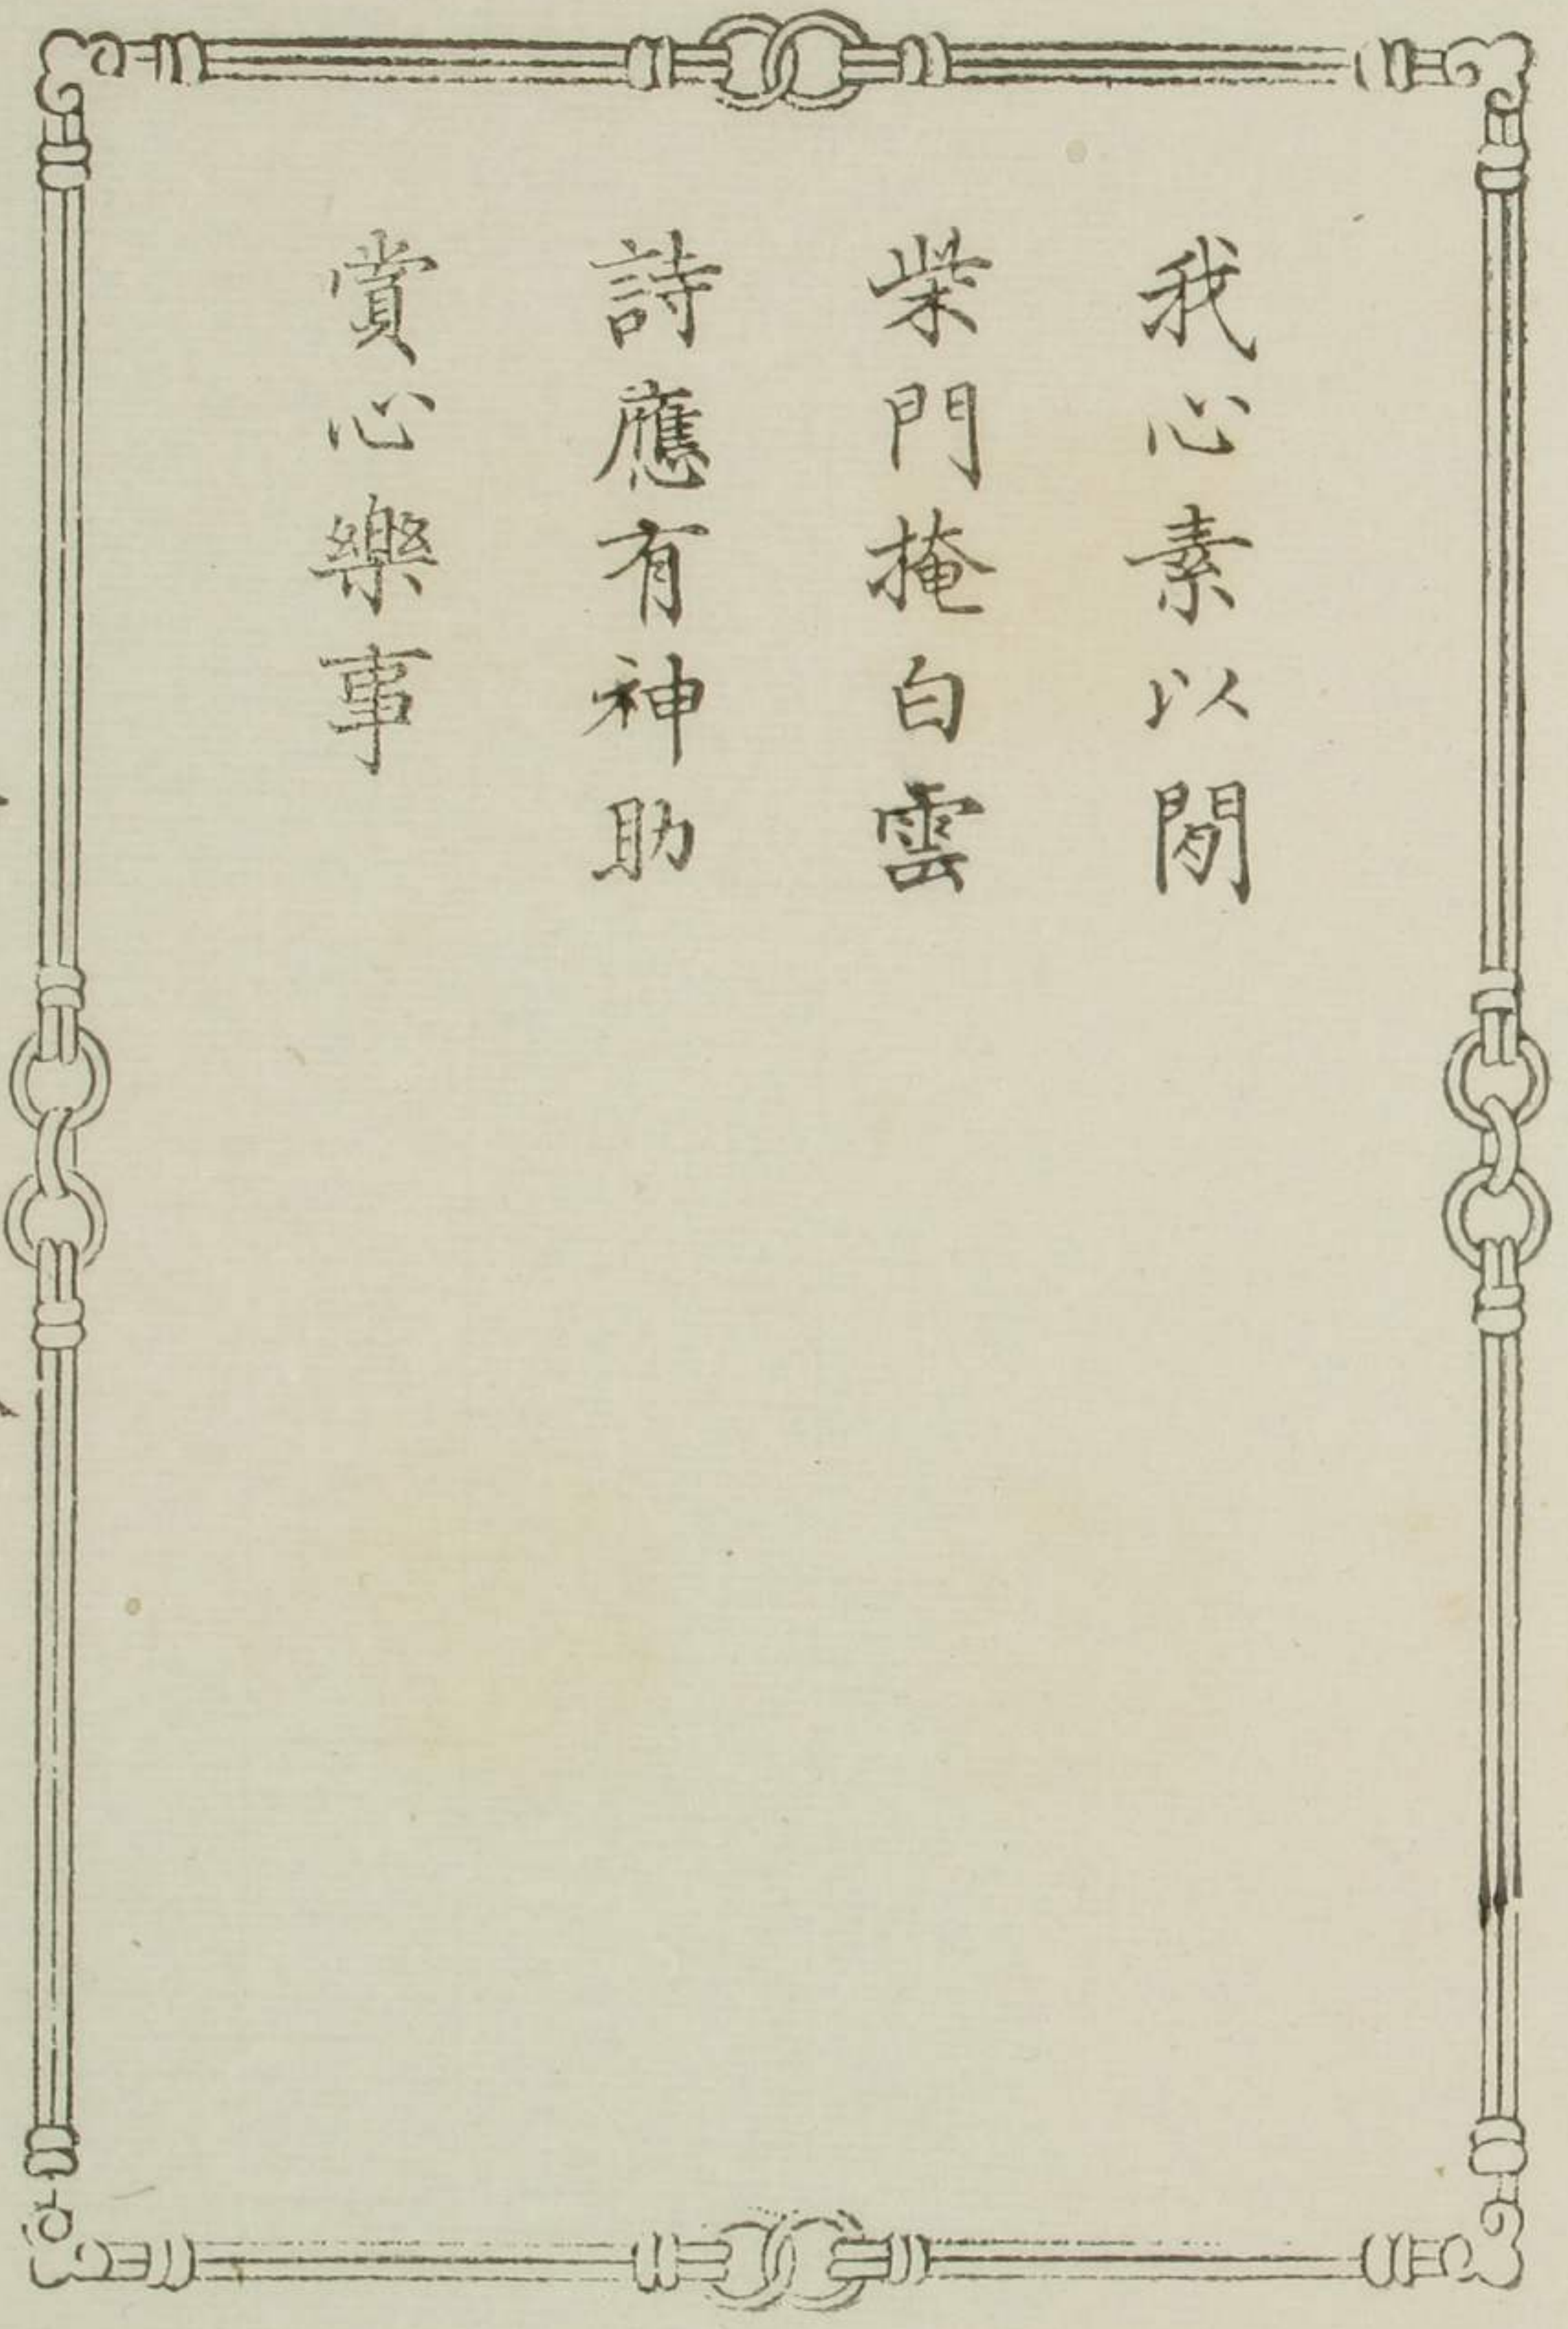 我心素以閒
柴門掩白雲
詩應有神助
賞心樂事